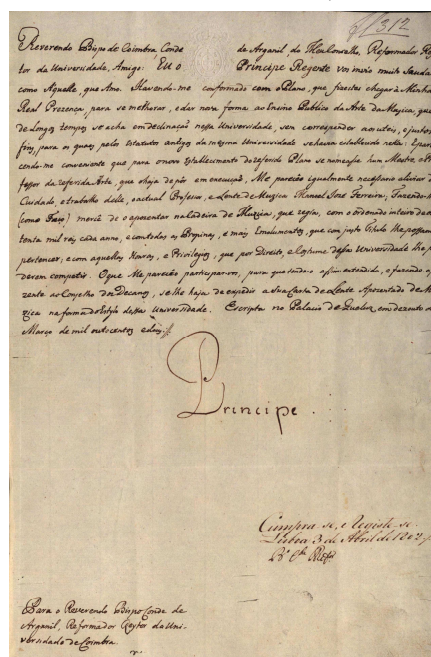 fl 312
Reverendo Bispo de Coimbra Conde de Arganil, do Meu Conselho, Reformador Rey
tor da Universidade, Amigo: EU o Principe Regente vos invio muito Saudar
como Aquelle, que Amo. Havendo-me conformado com o Plano, que fizestes chegar á Minha
Real Prezença, para se melhorar, e dar nova forma ao Ensino Publico da Arte da Muzica, que
de Longos tempos se acha em declinação nessa Universidade, sem corresponder aos uteis, e justos
fins, para os quaes pelos Estatutos antigos da mesma Universidade se havia estabelecido nella: E pare
cendo-me conveniente que para o novo Estabelecimento do referido Plano se nomeasse hum Mestre e Pro
fessor da referida Arte, que o haja de pôr em execução, Me pareceo igualmente necessario aliviar do
Cuidado, e trabalho delle, o actual Professor, e Lente de Muzica Manoel José Ferreira; Fazendo-lhe
(como Faço) mercê de o apozentar na Cadeira de Muzica, que regia, com o ordenado inteiro de
tenta mil reis cada anno, e com todas as Propinas, e mais Emolumentos, que com justo titulo lhe possam
pertencer, e com aquellas Honras, e Privilegios, que por Direito, e Costume dessa Universidade lhe po
derem competir. O que Me pareceo participarvos, para que tendo-o assim entendido, e fazendo-o pre
zente ao Conselho dos Decanos, se lhe haja de expedir a Sua Carta de Lente Apozentado de Mu
zica na forma do Estylo dessa Universidade. Escripta no Palacio de Queluz, em dezoito de
Março de mil outocentos e dous.
Principe
Cumpra-se, e Registe-se.
Lisboa 3 de Abril de 1802
B.º C.de Ref.or
Para o Reverendo Bispo Conde de
Arganil, Reformador Reytor da Uni-
versidade de Coimbra.